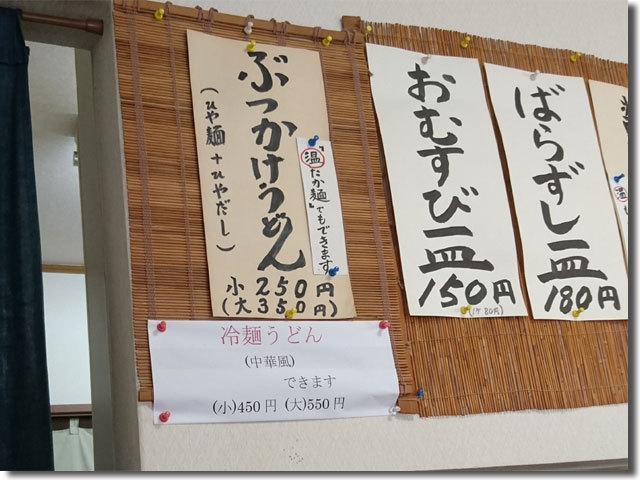 ぶっかけうどん
(ひや麺+ひやだし)
「温たか麺」でもできます
小250円
(大350円)
おむすび一皿
150円
(1ケ80円)
ばらずし一皿
180円
温
冷麺うどん
(中華風)
できます
(小)450円 (大)550円